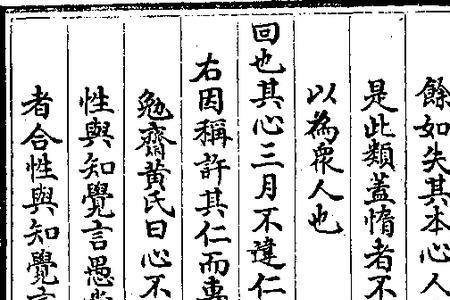 餘如失其本心人
是此類蓋惰者不
以為衆人也
回也其心三月不違仁
右因稱許其仁而專
勉齋黃氏曰心不
性與知覺言愚
者合性與知覺言